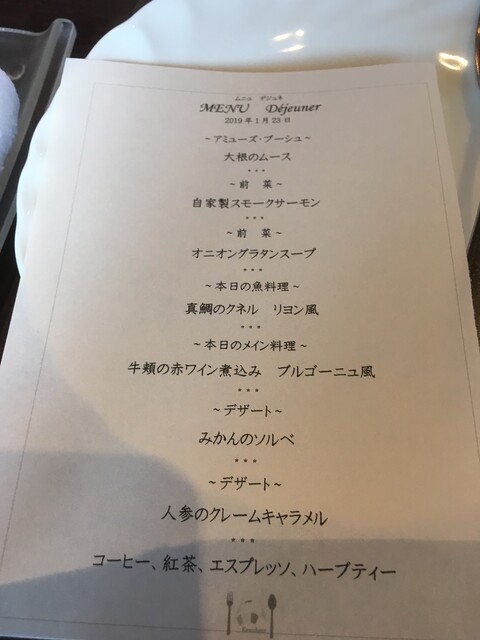 ムニュ デジュネ
MENU Déjeuner
2019年1月23日
~アミューズ・ブーシュ~
大根のムース
***
~前 菜~
自家製スモークサーモン
***
~前 菜~
オニオングラタンスープ
***
~本日の魚料理~
真鯛のクネル リヨン風
***
~本日のメイン料理~
牛頬の赤ワイン煮込み ブルゴーニュ風
***
~デザート~
みかんのソルベ
***
~デザート~
人参のクレームキャラメル
***
コーヒー、紅茶、エスプレッソ、ハーブティー